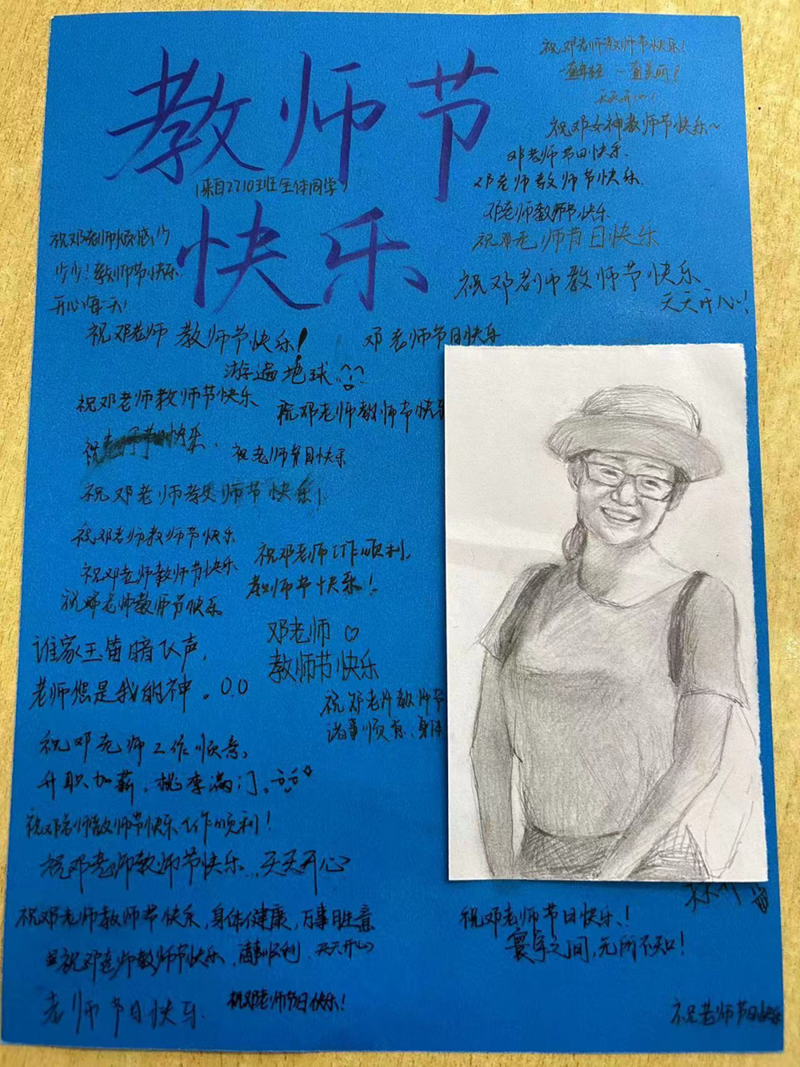 教师节
(来自2710班全体同学)
快乐
祝邓老师教师节快乐!
天天开心!
祝邓女神教师节快乐~
邓老师节日快乐.
邓老师教师节快乐.
邓老师教师节快乐
祝邓老师节日快乐
祝邓老师教师节快乐、
天天开心!
少少!教师节快乐
开心每天!
祝邓老师 教师节快乐!
邓老师节日快乐
游遍地球
祝邓老师教师节快乐
祝邓老师教师节快乐
祝老师节日快乐
祝邓老师教师节快乐!
祝邓老师教师节快乐
祝邓老师教师节快乐
祝邓老师教师节快乐
祝邓老师工作顺利,
教师节快乐!
邓老师♡
教师节快乐
谁家玉笛暗飞声,
老师您是我的神。0.0
祝邓老师教师节
祝邓老师工作顺意,
升职加薪,桃李满门,
祝邓老师教师节快乐 工作顺利!
祝邓老师教师节快乐,天天开心
祝邓老师教师节快乐,身体健康,万事胜意
祝邓老师教师节快乐, 天天开心
老师节日快乐.
祝邓老师节日快乐!
祝邓老师节日快乐!
寰宇之间,无所不知!
祝老师节日快乐